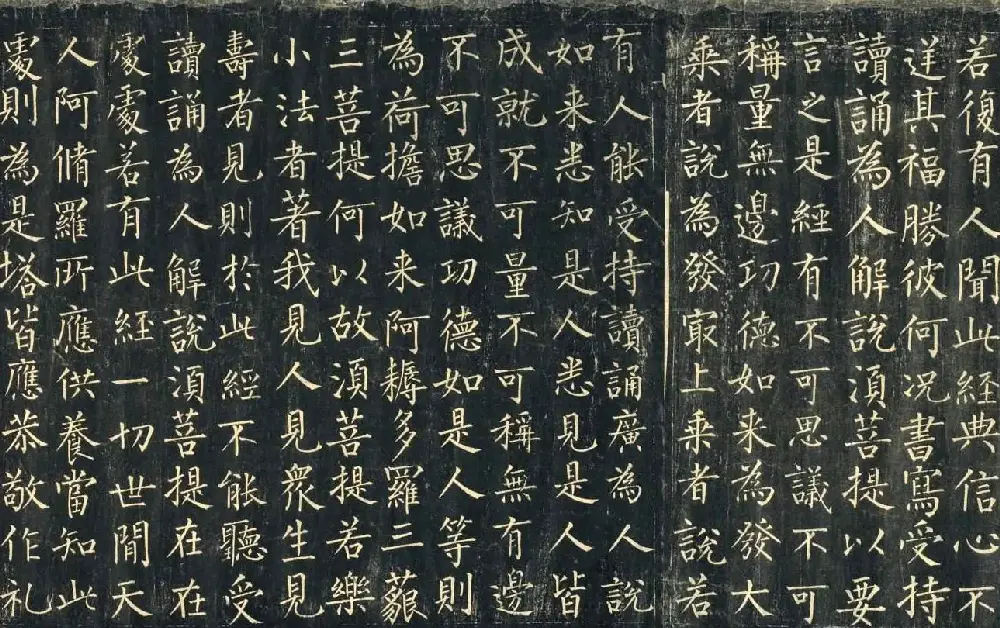 若復有人聞此経典信心不
逆其福勝彼何况書寫受持
讀誦為人解說湏菩提以要
言之是經有不可思議不可
稱量無邊功德如来為發大
乗者說為發冣上乗者說若
有人能受持讀誦廣為人說
如来悉知是人悉見是人皆
成就不可量不可稱無有邊
不可思議功德如是人等則
為荷擔如来阿耨多羅三藐
三菩提何以故湏菩提若樂
小法者著我見人見衆生見
壽者見則於此經不能聽受
讀誦為人解說湏菩提在在
處處若有此経一切世間天
人阿脩羅所應供養當知此
處則為是塔皆應恭敬作礼